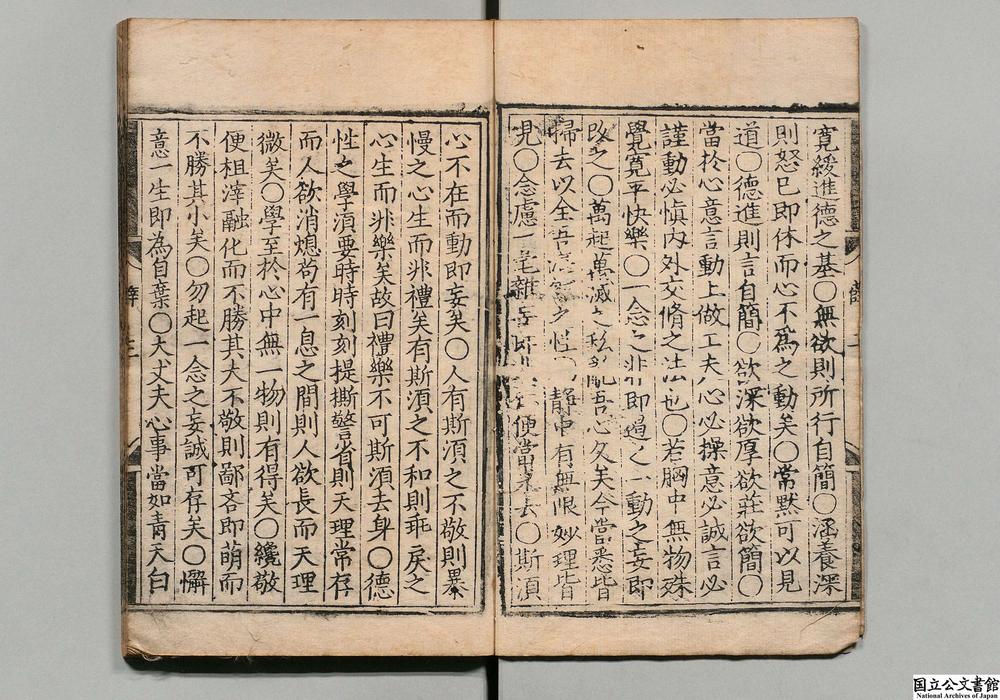 寛緩進德之基〇無欲則所行自簡〇涵養深
則怒已即休而心不爲之動矣〇常黙可以見
道〇德進則言自簡〇欲深欲厚欲莊欲簡〇
當於心意言動上做工夫心必操意必誠言必
謹動必慎内外交脩之法也〇若胸中無物殊
覺寛平快樂〇一念之非即遏之一動之妄即
改之〇萬起萬滅之私亂吾心久矣今當悉皆
掃去以全吾 之性 静中有無限妙理皆
見〇念慮一毫雜 便當 去〇斯湏
心不在而動即妄矣〇人有斯湏之不敬則暴
慢之心生而非禮矣有斯湏之不和則乖戾之
心生而非樂矣故曰禮樂不可斯湏去身〇德
性之學湏要時時刻刻提撕警省則天理常存
而人欲消熄苟有一息之間則人欲長而天理
微矣〇學至於心中無一物則有得矣〇纔敬
便柤滓融化而不勝其大不敬則鄙吝即萌而
不勝其小矣〇勿起一念之妄誠可存矣〇懈
意一生即為自棄〇大丈夫心事當如青天白
國立公文書館
National Archives of Japan